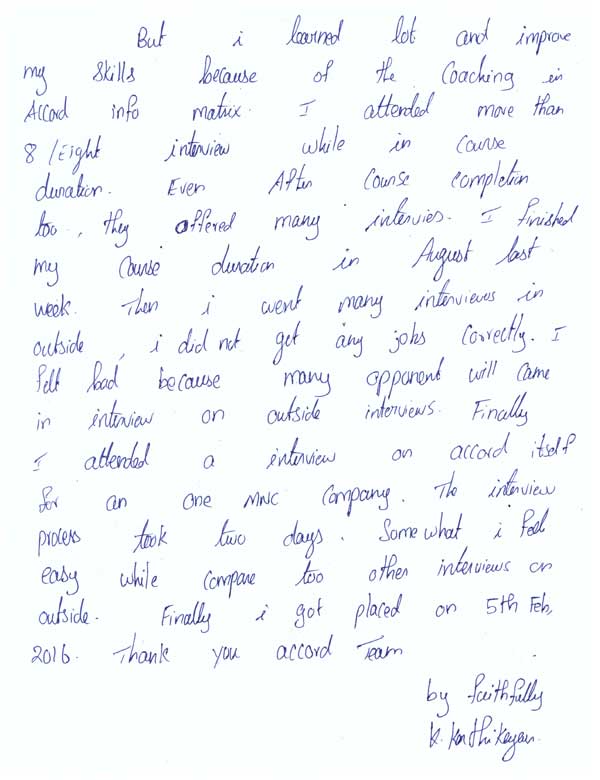 But i learned lot and improve
my skills because of the Coaching in
Accord info matrix. I attended more than
8 /Eight interview while in course
duration. Even After Course completion
too, they offered many intervies. I finished
my Course duration in August last
week. Then i went many interviews in
outside, i did not get any jobs Correctly. I
felt bad because many opponent will came
in interview on outside interviews. Finally
I attended a interview on accord itself
for an one MNC Company. The interview
process took two days. Somewhat i feel
easy while compare too other interviews on
outside. Finally i got placed on 5th Feb,
2016. Thank you accord Team
by faithfully
K. Karthikeyan.